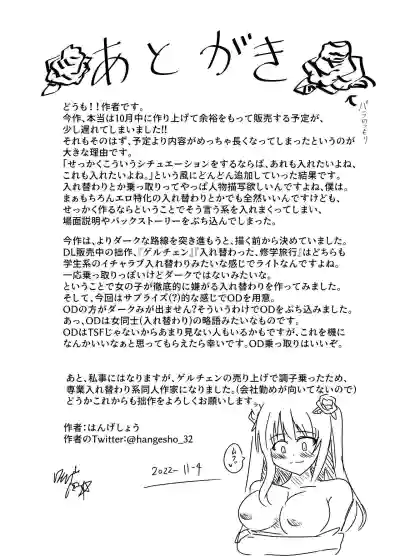 あとがき
バラのつもり
どうも！！作者です。
今作、本当は10月中に作り上げて余裕をもって販売する予定が、
少し遅れてしまいました!!
それもそのはず、予定より内容がめっちゃ長くなってしまったというのが
大きな理由です。
「せっかくこういうシチュエーションをするならば、あれも入れたいよね、
これも入れたいよね。」という風にどんどん追加していった結果です。
入れ替わりとか乗っ取りってやっぱ人物描写欲しいんですよね、僕は。
まぁもちろんエロ特化の入れ替わりとかでも全然いいんですけども、
せっかく作るならということでそう言う系を入れまくってしまい、
場面説明やバックストーリーをぶち込んでしまった。
今作は、よりダークな路線を突き進もうと、描く前から決めていました。
DL販売中の拙作、『ゲルチェン』『入れ替わった、修学旅行』はどちらも
学生系のイチャラブ入れ替わりみたいな感じでライトなんですよね。
一応乗っ取りっぽいけどダークではないみたいな。
ということで女の子が徹底的に嫌がる入れ替わりを作ってみました。
そして、今回はサプライズ(?)的な感じでODを用意。
ODの方がダークみが出ません？そういうわけでODをぶち込みました。
あっ、ODは女同士(入れ替わり)の略語みたいなものです。
ODはTSFじゃないからあまり見ない人もいるかもですが、これを機に
なんかいいなぁと思ってもらえたら幸いです。OD乗っ取りはいいぞ。
あと、私事にはなりますが、ゲルチェンの売り上げで調子乗ったため、
専業入れ替わり系同人作家になりました。(会社勤めが向いてないので)
どうかこれからも拙作をよろしくお願いします。
作者：はんげしょう
作者のTwitter：@hangesho_32
2022-11-4